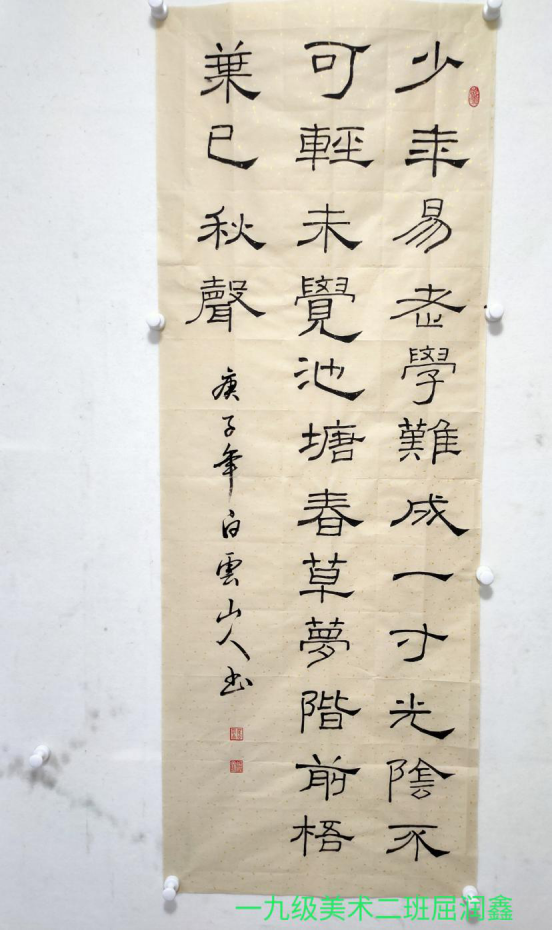 少年易老學難成一寸光陰不
可輕未覺池塘春草夢階前梧
葉已秋聲
庚子年白雲山人书
一九级美术二班屈润鑫